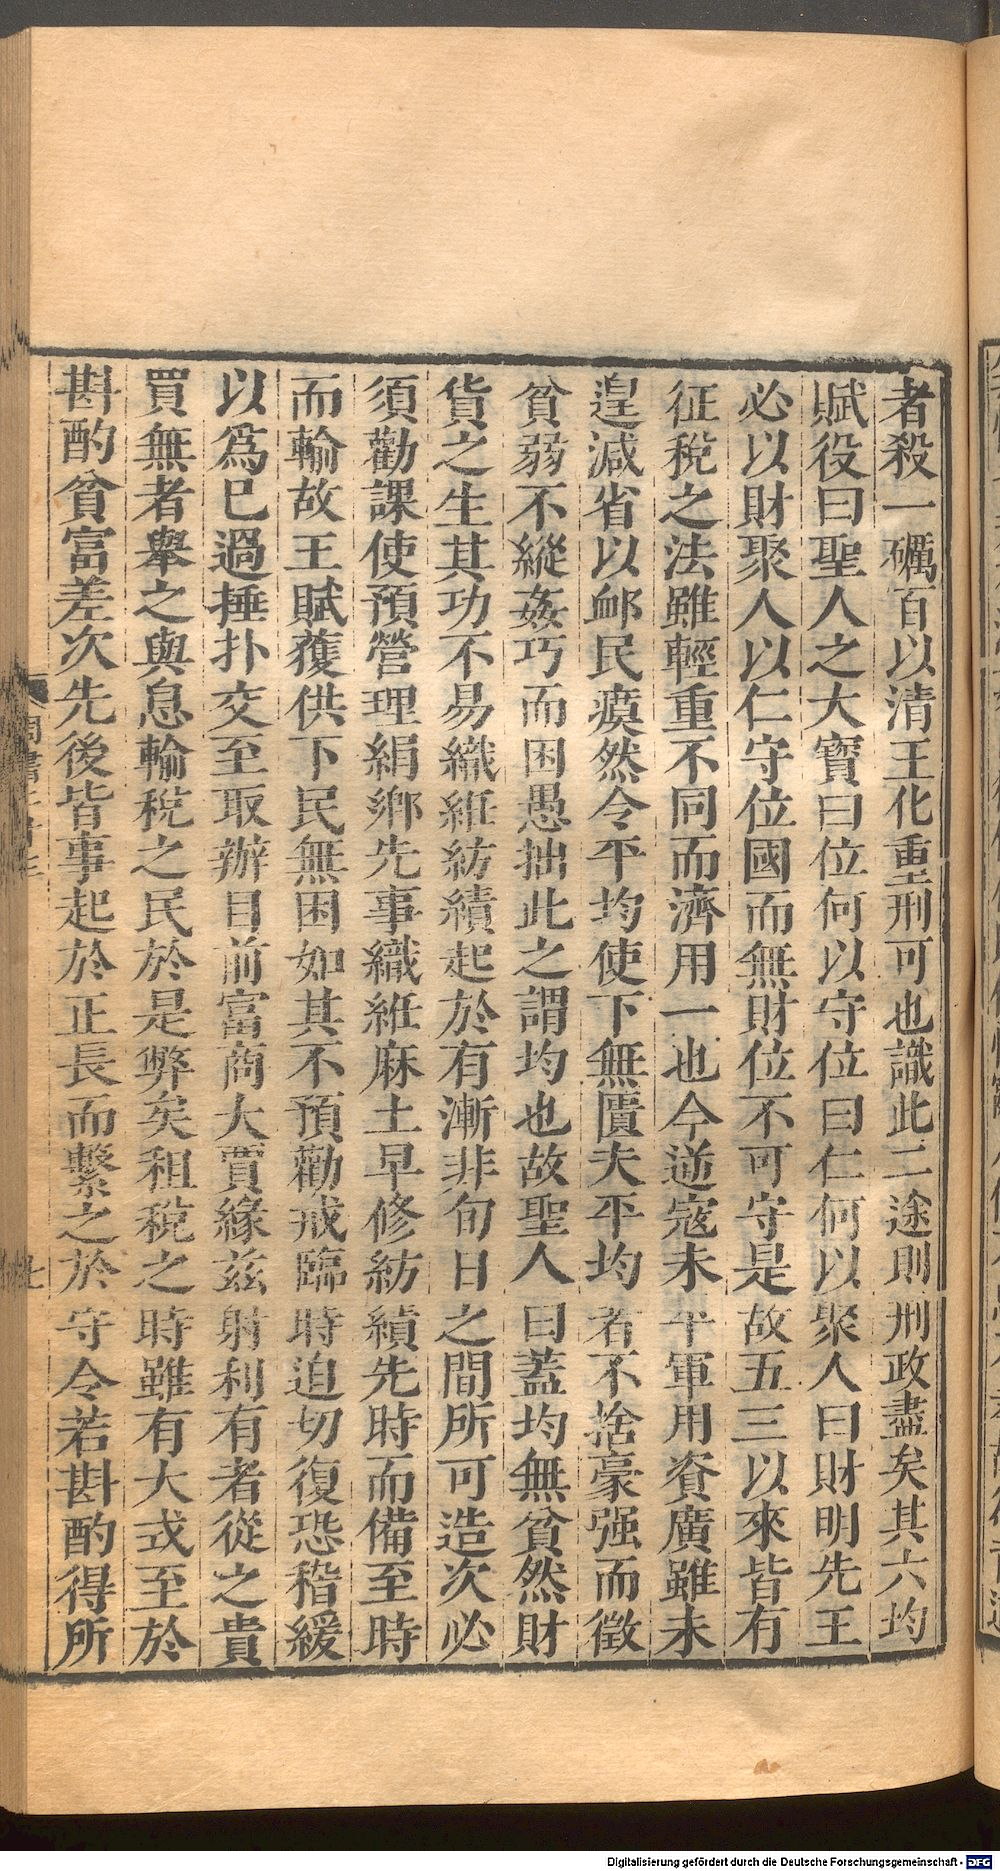 者殺一礪百以清王化重刑可也識此二途則刑政盡矣其六均
賦役曰聖人之大寶曰位何以守位曰仁何以聚人曰財明先王
必以財聚人以仁守位國而無財位不可守是故五三以來皆有
征稅之法雖輕重不同而濟用一也今逆寇未平軍用資廣雖未
遑減省以䘏民瘼然令平均使下無匱夫平均者不捨豪强而徵
貧弱不縱姦巧而困愚拙此之謂均也故聖人曰蓋均無貧然財
貨之生其功不易織紝紡績起於有漸非旬日之間所可造次必
須勸課使預營理絹鄉先事織紝麻土早修紡績先時而備至時
而輸故王賦獲供下民無困如其不預勸戒臨時迫切復恐稽緩
以爲已過捶扑交至取辦目前富商大賈緣兹射利有者從之貴
買無者舉之與息輸稅之民於是弊矣租稅之時雖有大式至於
斟酌貧富差次先後皆事起於正長而繫之於守令若斟酌得所
Digitalisierung gefördert durch die Deutsche Forschungsgemeinschaft - DFG